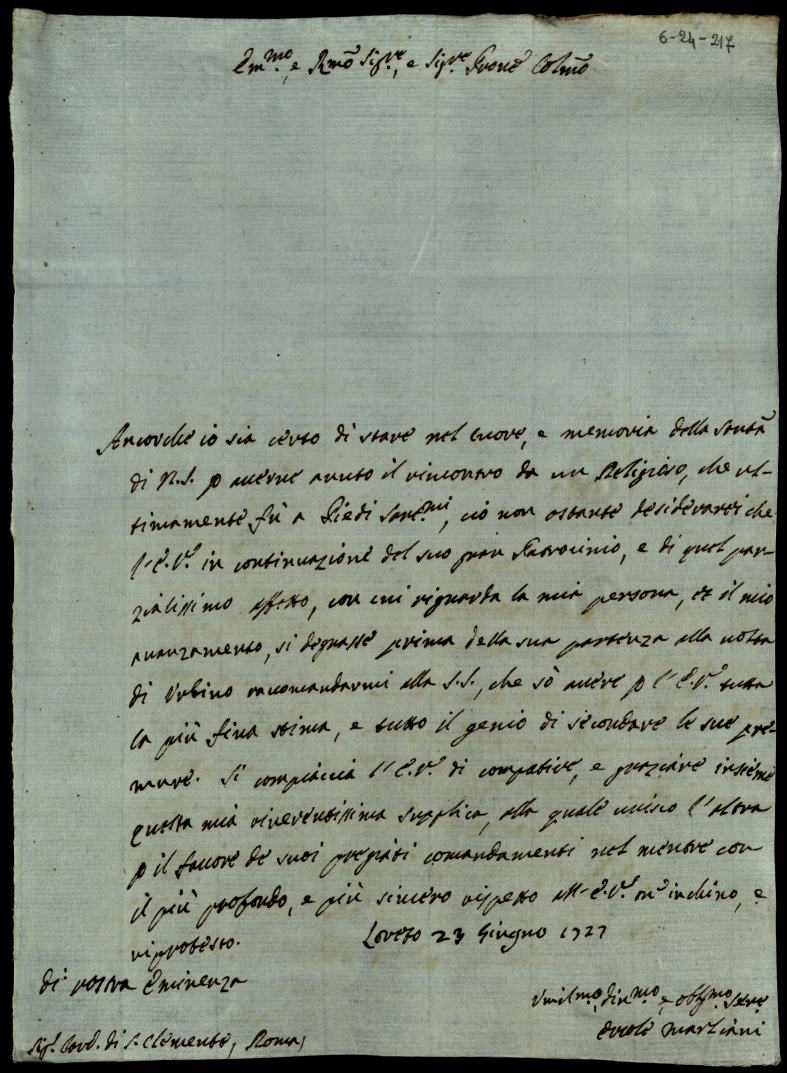 6-24-217
Em.mo, e Rmõ Sig.re, e Sig.re Prone Colmõ
Ancorche io sia certo di stare nel cuore, e memoria della Santà
di N.S. p averne avuto il rincontro da un Religioso, che ul-
timamente fù a Piedi Sant.mi, ciò non ostante desiderarei che
l'E.V. in continuazione del suo gran Patrocinio, e di quel par-
zialissimo affetto, con cui riguarda la mia persona, et il mio
avanzamento, si degnasse prima della sua partenza alla volta
di Urbino racomandarmi alla S.S., che sò avere p l'E.V. tutta
la più fina stima, e tutto il genio di secondare le sue pre-
mure. Si compiaccia l'E.V. di compatire, e graziare insieme
questa mia riverentissima supplica, alla quale unisco l'altra
p il favore de suoi pregiati comandamenti nel mentre con
il più profondo, e più sincero rispetto all'E.V. m'inchino, e
riprotesto.
Loreto 23 Giugno 1727
di vostra Eminenza
Umil.mo, di.mo, e obb.mo Serre
Ercole Marliani
Sig. Card. di S. Clemente, Roma,